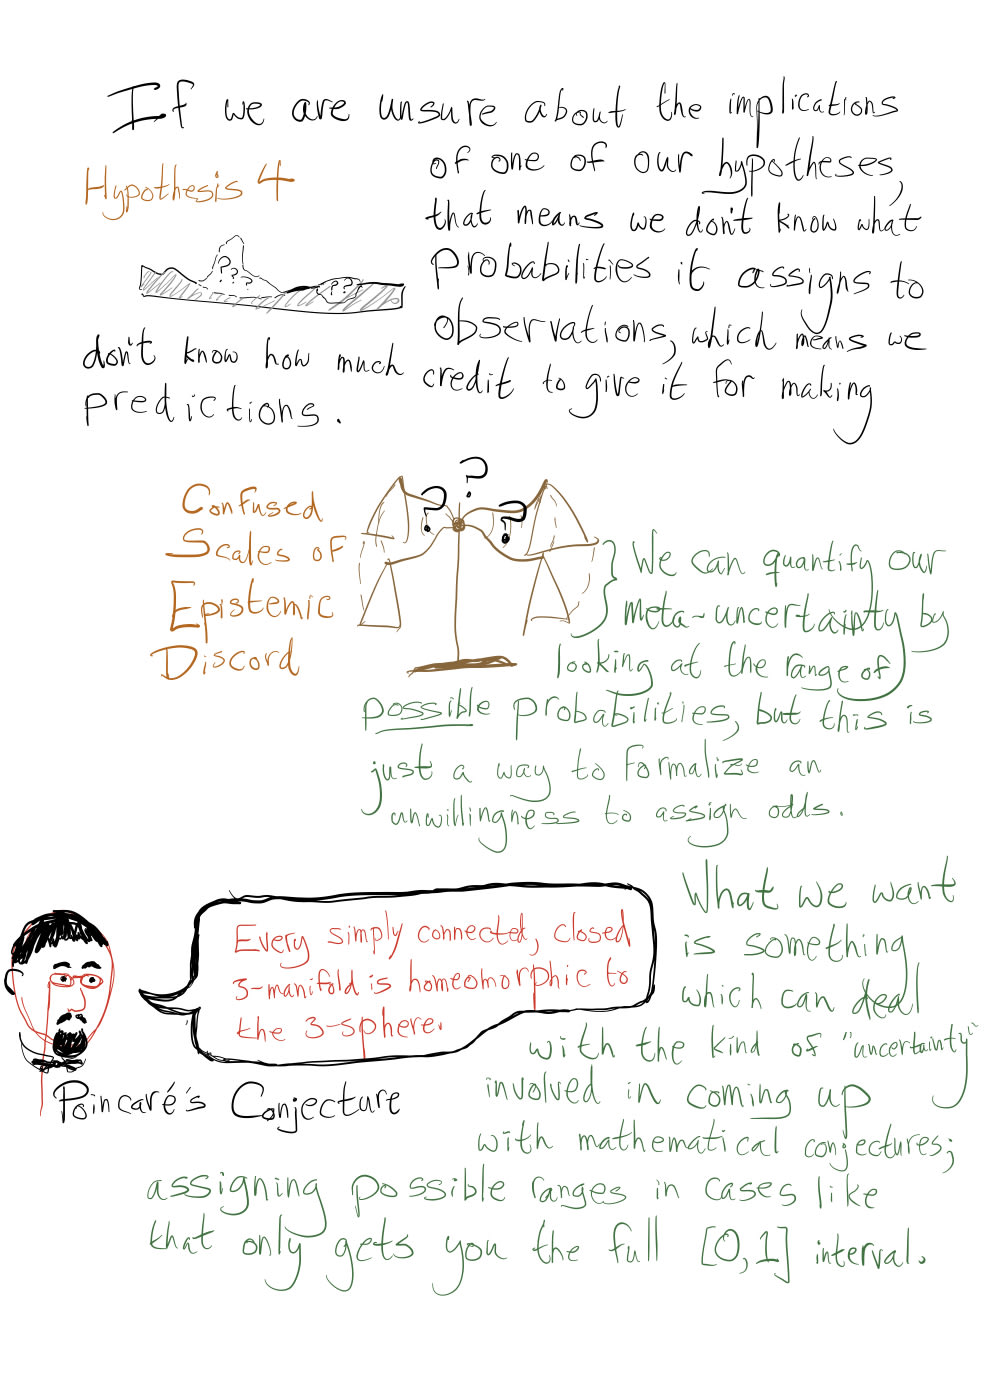 If we are unsure about the implications
of one of our hypotheses,
Hypothesis 4
that means we don't know what
probabilities it assigns to
? ? ? ?
? ? ?
observations, which means we
don't know how much credit to give it for making
predictions.
?
? ?
Confused
Scales of
Epistemic
Discord
We can quantify our
meta-uncertainty by
looking at the range of
possible probabilities, but this is
just a way to formalize an
unwillingness to assign odds.
Every simply connected, closed
3-manifold is homeomorphic to
the 3-sphere.
Poincaré's Conjecture
What we want
is something
which can deal
with the kind of "uncertainty"
involved in coming up
with mathematical conjectures;
assigning possible ranges in cases like
that only gets you the full [0,1] interval.